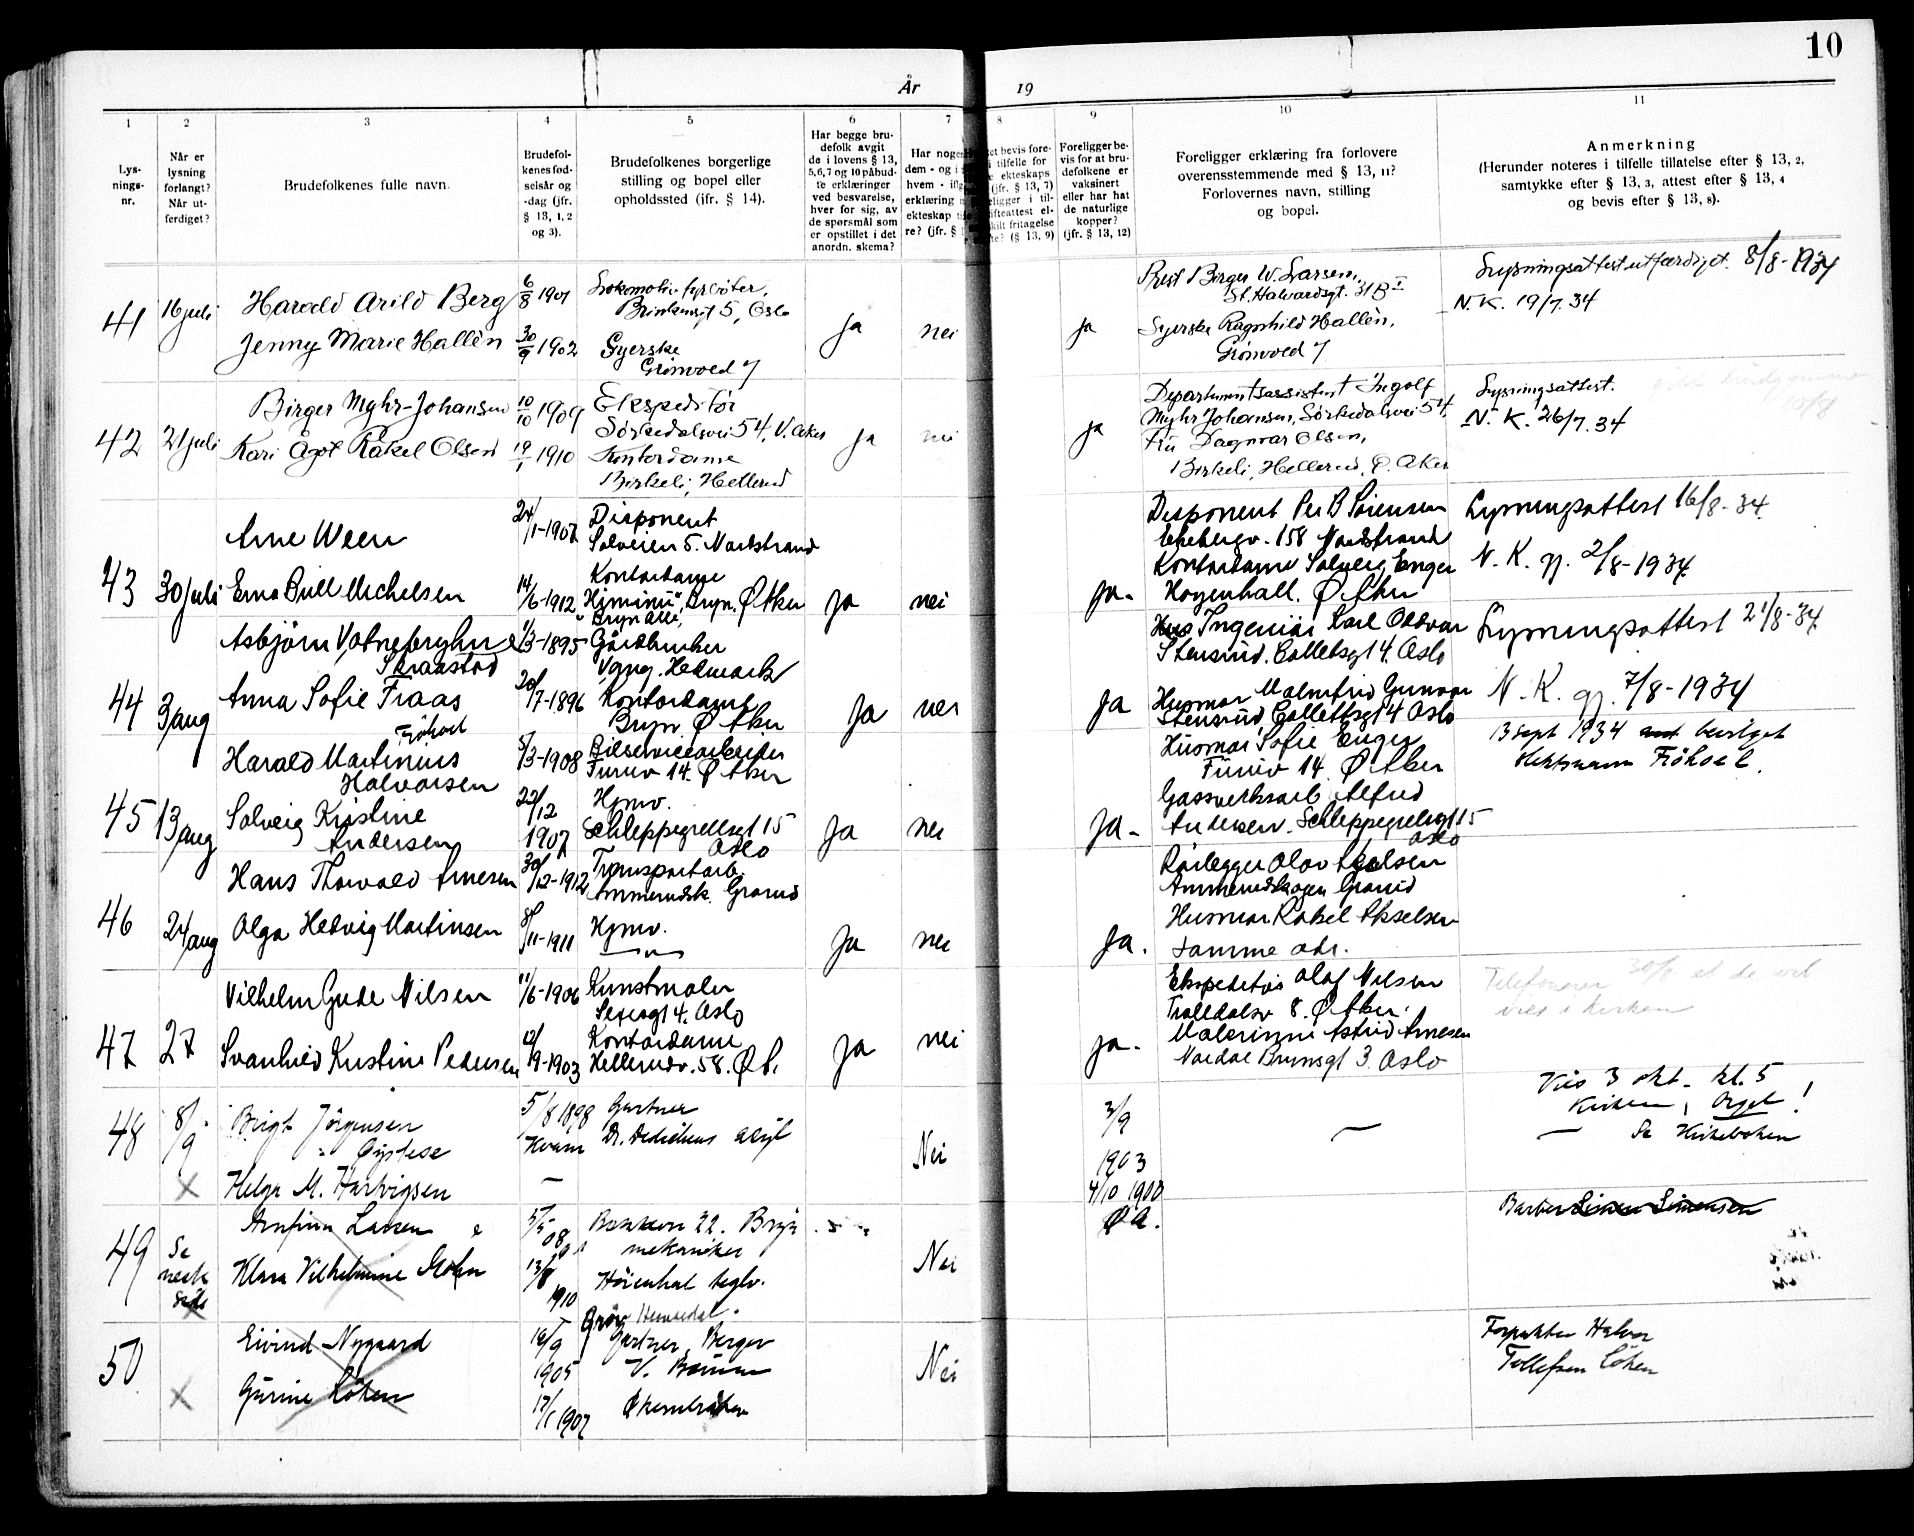 10
År 19
1 2 3 4 5 6 7 8 9 10 11
Lys-
nings-
nr.
Når er
lysning
forlangt?
Når ut-
ferdiget?
Brudefolkenes fulle navn.
Brudefol-
kenes fød-
selsår og
-dag (jfr.
§ 13, 1, 2
og 3).
Brudefolkenes borgerlige
stilling og bopel eller
opholdssted (jfr. § 14).
Har begge bru-
defolk avgit
de i lovens § 13,
5,6,7 og 10 påbud-
te erklæringer
ved besvarelse,
hver for sig, av
de spørsmål som
er opstillet i det
anordn. skema?
Har noge
dem - og i
hvem - ifl
erklæring
ekteskap ti
re? (jfr. §
et bevis fore-
i tilfelle for
ekteskaps
(jfr. § 13, 7)
ligger i til-
ifteattest el-
kilt fritagelse
te? (§ 13, 9)
Foreligger be-
vis for at bru-
defolkene er
vaksinert
eller har hat
de naturlige
kopper?
(jfr. § 13, 12)
Foreligger erklæring fra forlovere
overensstemmende med § 13, 11?
Forlovernes navn, stilling
og bopel.
Anmerkning
(Herunder noteres i tilfelle tillatelse efter § 13, 2,
samtykke efter § 13, 3, attest efter § 13, 4
og bevis efter § 13, 8).
41
16 juli
Harald Arild Berg
Jenny Marie Hallèn
6/8 1901
30/9 1902
Lokomotivfyrbøter,
5, Oslo
Syerske
Grønvold 7
ja
nei
ja
Prest Birger W. Larsen,
St. Halvardsgt. 31 B I
Syerske Ragnhild Hallèn,
Grønvold 7
Lysningsattest utferdiget. 8/8-1934
N.K. 19/7.34
42
21 juli
Birger Myhr-Johansen
Kari Ågot Rakel Olsen
10/10 1909
19/1 1910
Ekspeditør
Sørkedalsvei 54, V. Aker
Kontordame
Birkeli, Hellerud
ja
nei
ja
Departementsassistent Ingolf
Myhr Johansen, Sørkedalsvei 54,
Fru Dagmar Olsen,
Birkeli, Hellerud, Ø. Aker
Lysningsattest.
10/8
N.K. 26/7.34
43
30 juli
Arne Ween
Erna Bull Michelsen
24/1-1907
14/6-1912
Disponent
Solveien 5. Nordstrand
Kontordame
Bryn. Ø Aker
ja
nei
ja.
Disponent Per B Sörensen
Ekebergv. 158 Nordstrand
Kontordame Solveig Enger
Hogenhall. Ø Aker
Lysningsattest 16/8-34.
N.K. gj. 2/8-1934.
44
3 aug
Skraastad
Anna Sofie Fraas
1/3-1895
20/7-1896
Bryn Alle,
Gårdbruker
Vang. Hedmark
Kontordame
Bryn Ø Aker
Ja
nei
ja
Ingeniör Karl Oddvar
Stensrud. Collettsgt 4. Oslo
Husmor Malmfrid Gunvor
Stensrud Collettsgt 4 Oslo
Lysningsattest 21/8-34
N.K. gj. 7/8-1934
45
13 aug
Fröhoel
Harald Martinius
Halvorsen
Solveig Kristine
Andersen
5/3-1908
22/12
1907
Bilservicearbeider
Furuv 14. Ø Aker
Hjmv.
Schleppegrellsgt 15
Oslo
Ja
nei
ja-
Husmor Sofie Enger
Furuv 14 Ø Aker
Gassverksarb Alfred
Andersen. Schleppegrellsgt 15
Oslo
13 sept 1934 bevilget
slektsnavn Fröhoel.
46
24 aug
Hans Thorvald Arnesen
Olga Hedvig Martinsen
30/12-1912
8/11-1911
Transportarb.
Ammerudsk. Grorud
Hjmv.
Ja
nei
ja.
Rörlegger Olav Akselsen
Ammerudskogen Grorud
Husmor Rakel Akselsen
samme adr.
47
27
Vilhelm Gude Nilsen
Svanhild Kristine Pedersen
11/6-1906
12/9-1903
Kunstmaler
4. Oslo
Kontordame
Hellerudv. 58. Ø A.
Ja
nei
ja-
Ekspeditör Olaf Nilsen
Trolldalsv 8. Ø Aker.
Malerinne Astrid Arnesen
Nordal Brunsgt 3. Oslo
Telefonerer 30/8 at de vil
vies i kirken
Vies 3 okt. kl. 5
Kirken, Orgel!
48
8/9
Birgt Jörgensen
Öystese
Helga M. Hartvigsen
5/8 1898
Kvam
Gartner
Dr. Dedichens asyl
Nei
3/9
1903
4/10 1900
Ø A.
Se Kirkeboken
49
Se
neste
side
Arnfinn Larsen
Klara Vilhelmine Mohn
5/5
08
13/8
1910
22. Bryn
mekaniker
Höienhal teglv.
Nei
Barber Simensen
50
Eivind Nygaard
Gurine Löken
16/9
1905
17/1 1907
Grön Hemsedal.
Gartner, Berger
V. Bærum
Økernbråten
Nei
Forpakter Halvor
Tollefsen Löken